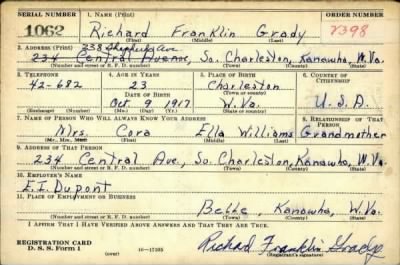 SERIAL NUMBER 1. NAME (Print) ORDER NUMBER
1062 Richard Franklin Grady 2398
(First) (Middle) (Last)
3. ADDRESS (Print) 338 Shepherd Ave
234 Central Avenue, So. Charleston, Kanawha, W. Va.
(Number and street or R. F. D. number) (Town) (County) (State)
3. TELEPHONE 4. AGE IN YEARS 5. PLACE OF BIRTH 6. COUNTRY OF CITIZENSHIP
42-682 23 Charleston
DATE OF BIRTH (Town or county)
Oct. 9 1917 W. Va. U.S.A.
(Exchange) (Number) (Mo.) (Day) (Yr.) (State or country)
7. NAME OF PERSON WHO WILL ALWAYS KNOW YOUR ADDRESS 8. RELATIONSHIP OF THAT PERSON
Mrs. Cora Ella Williams Grandmother
(Mr., Mrs., Miss) (First) (Middle) (Last)
9. ADDRESS OF THAT PERSON
234 Central Ave., So. Charleston, Kanawha, W. Va.
(Number and street or R. F. D. number) (Town) (County) (State)
10. EMPLOYER'S NAME
E. I. Dupont
11. PLACE OF EMPLOYMENT OR BUSINESS
Belle, Kanawha, W. Va.
(Number and street or R. F. D. number) (Town) (County) (State)
I AFFIRM THAT I HAVE VERIFIED ABOVE ANSWERS AND THAT THEY ARE TRUE.
REGISTRATION CARD
D. S. S. Form 1 (over) 16-17105 Richard Franklin Grady
(Registrant's signature)